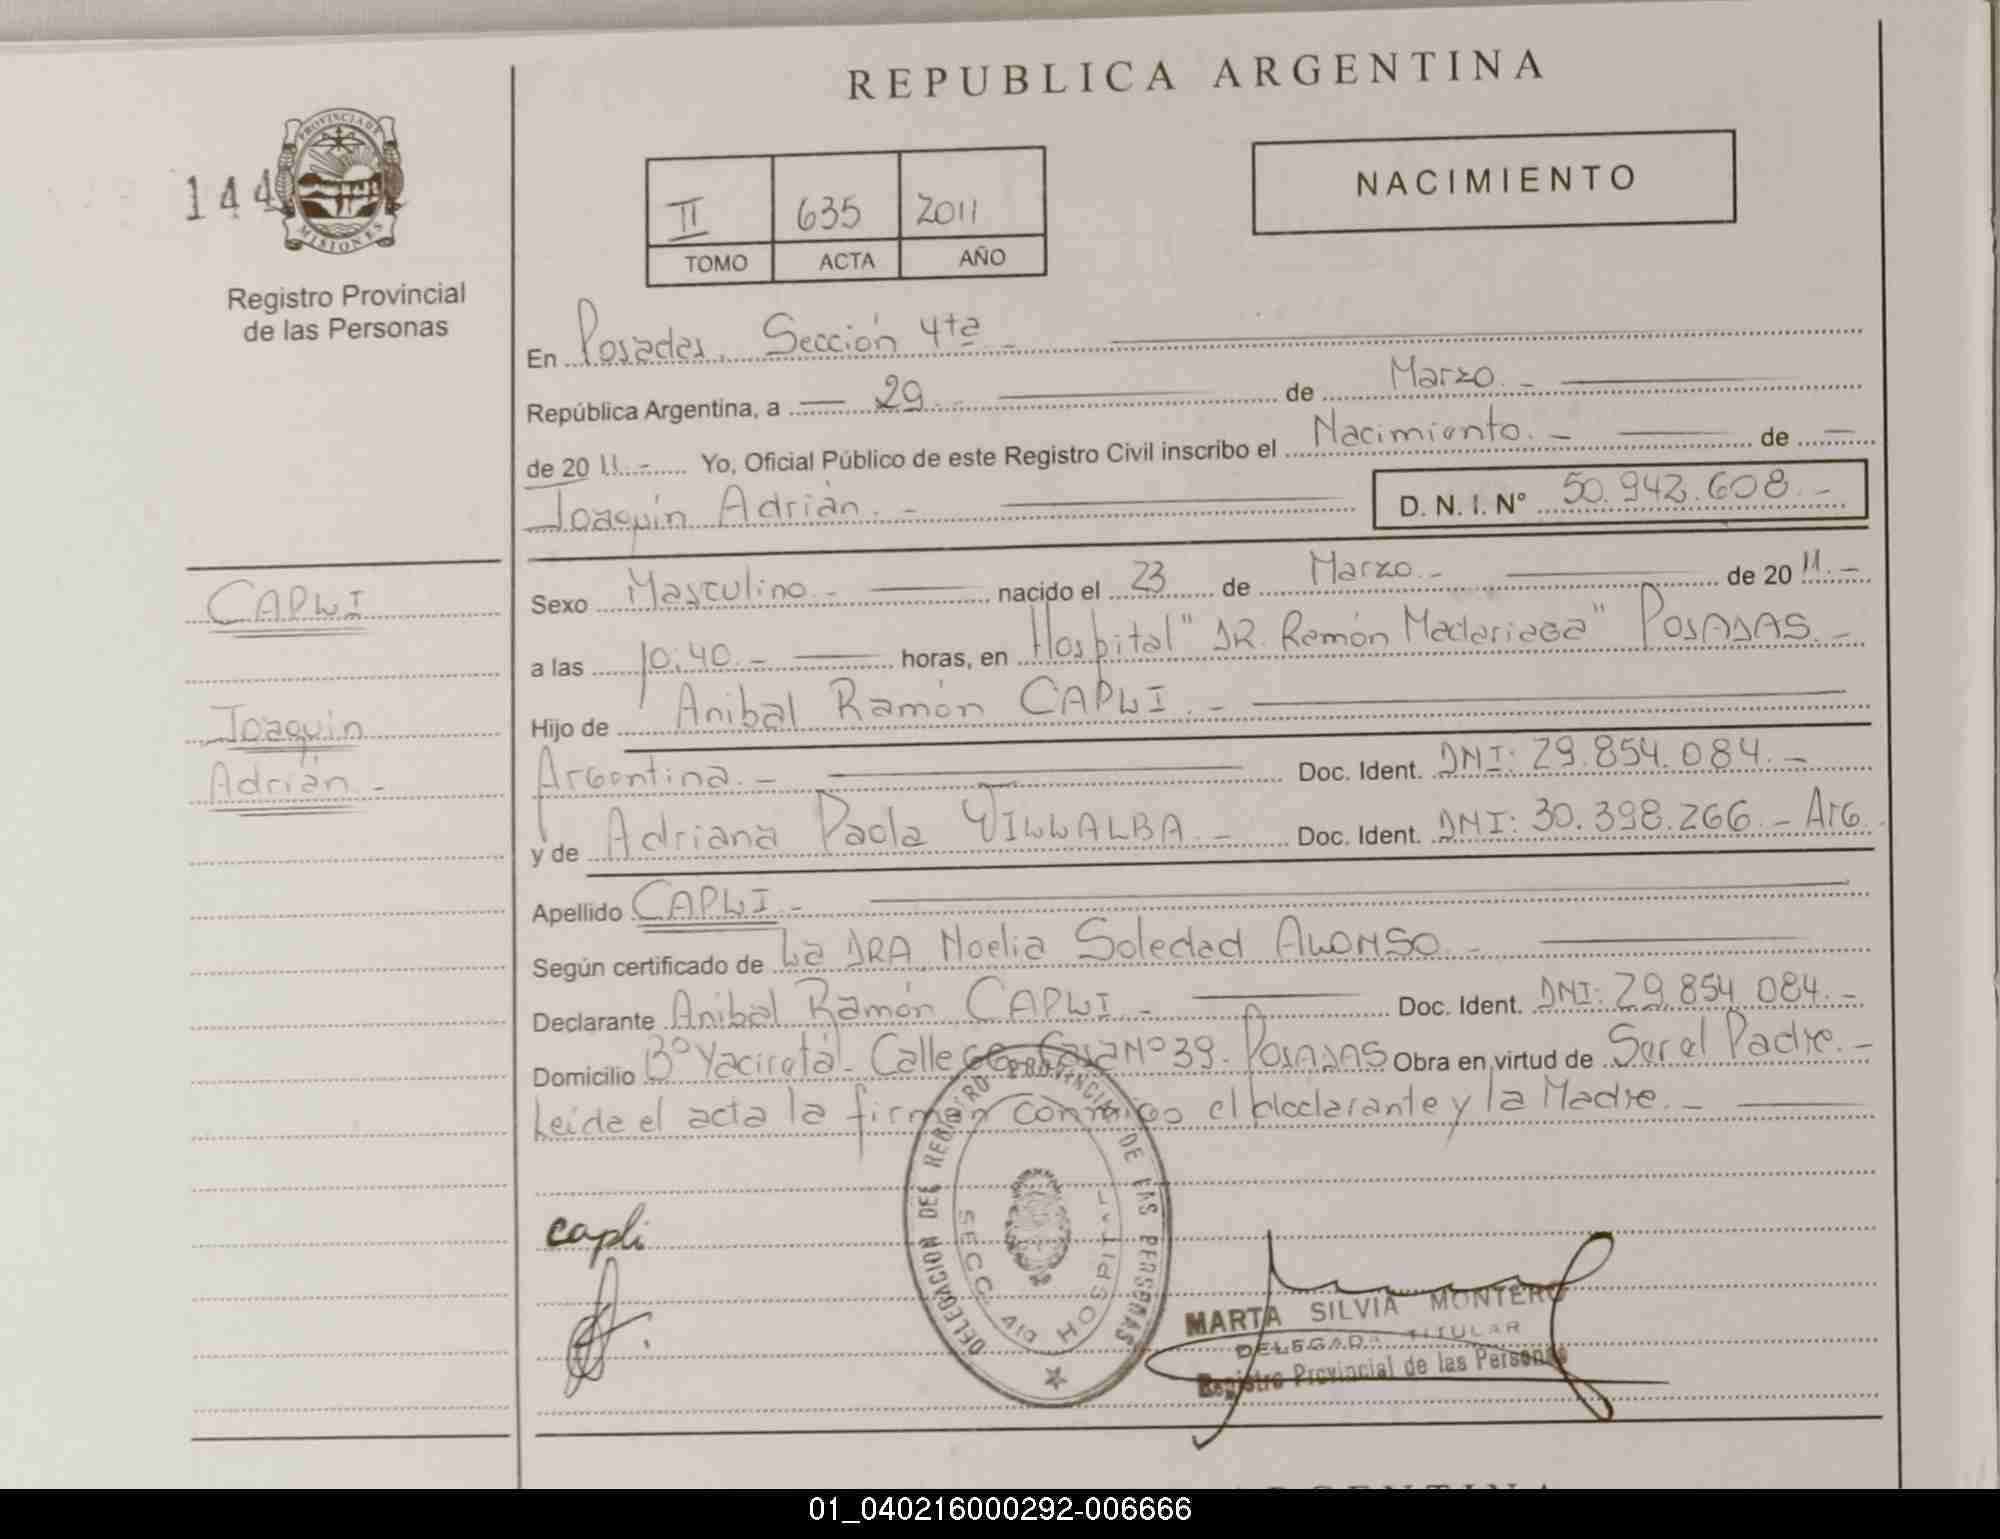 REPUBLICA ARGENTINA
144
PROVINCIA DE
MISIONES
Registro Provincial
de las Personas
II 635 2011
TOMO ACTA AÑO
NACIMIENTO
En Posadas, Sección 4ta -
República Argentina, a — 29 - de Marzo. -
de 20 11. - Yo, Oficial Público de este Registro Civil inscribo el Nacimiento. - de —
Joaquín Adrián. - D. N. I. N° 50.942.608. -
Sexo Masculino. - nacido el 23 de Marzo. - de 20 11. -
a las 10:40. - horas, en Hospital "DR. Ramón Madariaga" POSADAS. -
Hijo de Anibal Ramón CAPLI. -
Argentina. - Doc. Ident. DNI: 29.854.084. -
y de Adriana Paola VILLALBA. - Doc. Ident. DNI: 30.398.266. - Arg.
Apellido CAPLI. -
Según certificado de La DRA Noelia Soledad ALONSO. -
Declarante Anibal Ramón CAPLI. - Doc. Ident. DNI: 29.854.084. -
Domicilio B° Yaciretá - Calle Casa N° 39. POSADAS Obra en virtud de Ser el Padre. -
Leída el acta la firman conmigo el declarante y la Madre. -
CAPLI
Joaquín
Adrián. -
capli
DELEGACION DEL REGISTRO PROVINCIAL DE LAS PERSONAS
SECC. 4ta HOSPITAL
MARTA SILVIA MONTERO
DELEGADA TITULAR
Registro Provincial de las Personas
ARGENTINA
01_040216000292-006666